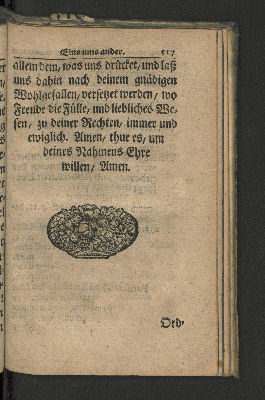 Eins ums ander. 517
allem dem, was uns drücket, und laß
uns dahin nach deinem gnädigen
Wohlgefallen, versetzet werden, wo
Freude die Fülle, und liebliches We-
sen, zu deiner Rechten, immer und
ewiglich. Amen, thue es, um
deines Nahmens Ehre
willen, Amen.
Ord-